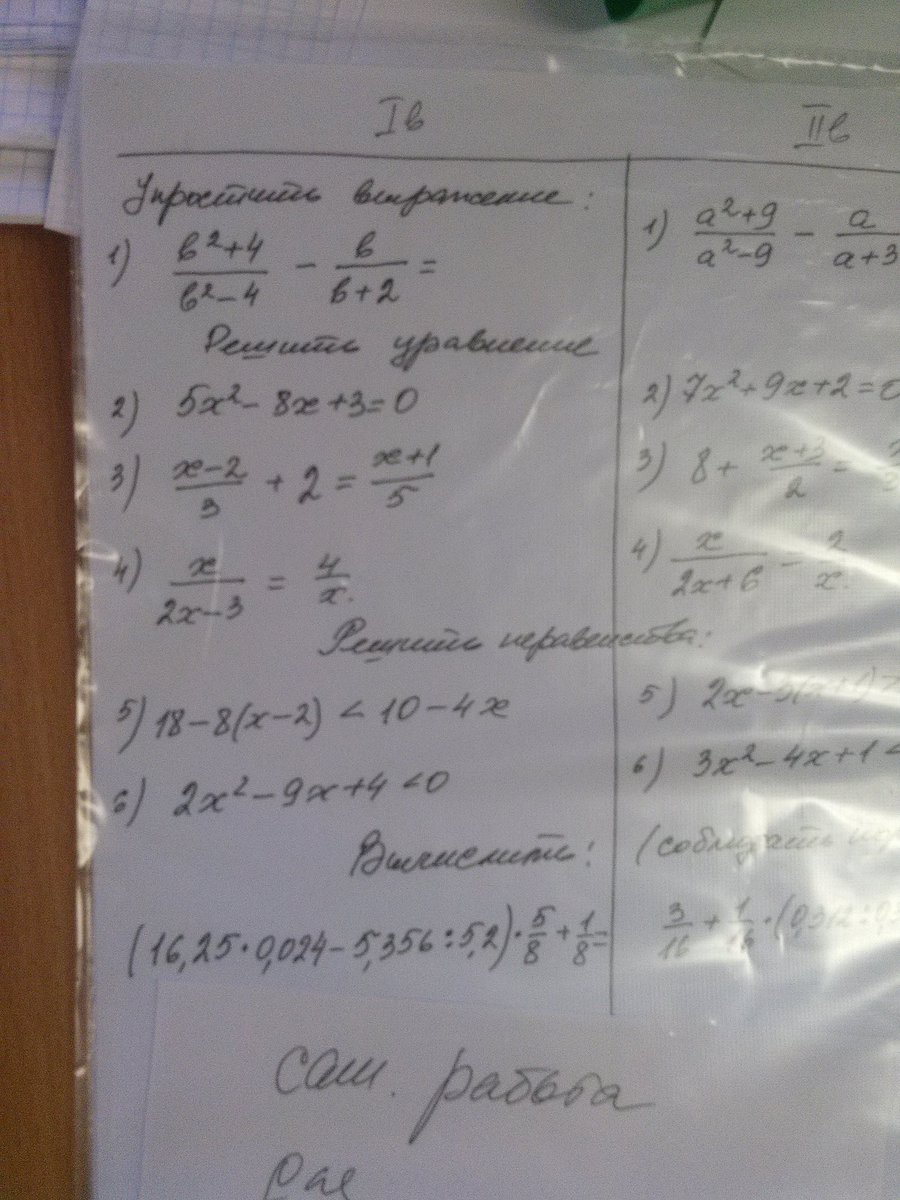 Iв
IIв
Упростить выражение:
1) (в²+4)/(в²-4) - в/(в+2) =
Решить уравнение
2) 5x²-8x+3=0
3) (x-2)/3 + 2 = (x+1)/5
4) x/(2x-3) = 4/x.
Решить неравенства:
5) 18-8(x-2) < 10-4x
6) 2x²-9x+4<0
Вычислить:
(16,25·0,024-5,356:5,2)·5/8+1/8=
1) (a²+9)/(a²-9) - a/(a+3
2) 7x²+9x+2=0
3) 8+ (x+3)/2 =
4) x/(2x+6) = 2/x.
5) 2x-
6) 3x²-4x+1<
(соблюдать
3/16+1/16·(0,312:0,
Сам. работа